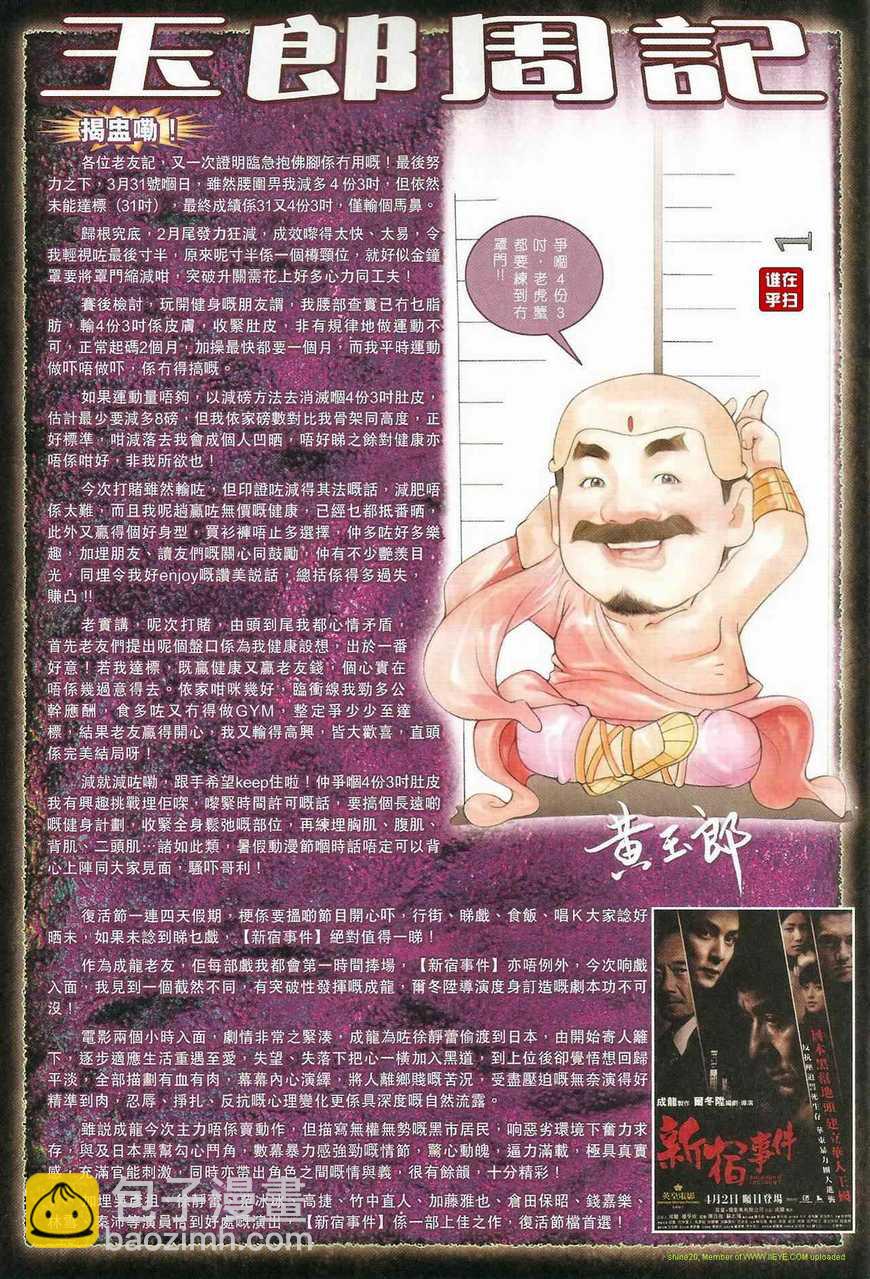 玉郎周記
揭盅嘞！
各位老友記，又一次證明臨急抱佛腳係冇用嘅！最後努
力之下，3月31號嗰日，雖然腰圍畀我減多４份3吋，但依然
未能達標（31吋），最終成績係31又4份3吋，僅輸個馬鼻。
歸根究底，2月尾發力狂減，成效嚟得太快、太易，令
我輕視咗最後寸半，原來呢寸半係一個樽頸位，就好似金鐘
罩要將罩門縮減咁，突破升關需花上好多心力同工夫！
賽後檢討，玩開健身嘅朋友謂，我腰部查實已冇乜脂
肪，輸4份3吋係皮膚，收緊肚皮，非有規律地做運動不
可，正常起碼2個月，加操最快都要一個月，而我平時運動
做吓唔做吓，係冇得搞嘅。
如果運動量唔夠，以減磅方法去消滅嗰4份3吋肚皮，
估計最少要減多8磅，但我依家磅數對比我骨架同高度，正
好標準，咁減落去我會成個人凹晒，唔好睇之餘對健康亦
唔係咁好，非我所欲也！
今次打賭雖然輸咗，但印證咗減得其法嘅話，減肥唔
係太難，而且我呢趟贏咗無價嘅健康，已經乜都抵番晒，
此外又贏得個好身型，買衫褲唔止多選擇，仲多咗好多樂
趣，加埋朋友、讀友們嘅關心同鼓勵，仲有不少艷羡目，
光，同埋令我好enjoy嘅讚美説話，總括係得多過失，
賺凸!!
老實講，呢次打賭，由頭到尾我都心情矛盾，
首先老友們提出呢個盤口係為我健康設想，出於一番
好意！若我達標，既贏健康又贏老友錢，個心實在
唔係幾過意得去。依家咁咪幾好，臨衝線我勁多公
幹應酬，食多咗又冇得做GYM，整定爭少少至達
標，結果老友贏得開心，我又輸得高興，皆大歡喜，直頭
係完美結局呀！
減就減咗嘞，跟手希望keep住啦！仲爭嗰4份3吋肚皮
我有興趣挑戰埋佢㗎，嚟緊時間許可嘅話，要搞個長遠啲
嘅健身計劃，收緊全身鬆弛嘅部位，再練埋胸肌、腹肌、
背肌、二頭肌…諸如此類，暑假動漫節嗰時話唔定可以背
心上陣同大家見面，騷吓哥利！
爭嗰4份3
吋，老虎蟹
都要練到冇
罩門!!
1
誰在
乎扫
黃玉郎
復活節一連四天假期，梗係要搵啲節目開心吓，行街、睇戲、食飯、唱Ｋ大家諗好
晒未，如果未諗到睇乜戲，【新宿事件】絕對值得一睇！
作為成龍老友，佢每部戲我都會第一時間捧場，【新宿事件】亦唔例外，今次响戲
入面，我見到一個截然不同，有突破性發揮嘅成龍，爾冬陞導演度身訂造嘅劇本功不可
沒！
電影兩個小時入面，劇情非常之緊湊，成龍為咗徐靜蕾偷渡到日本，由開始寄人籬
下，逐步適應生活重遇至愛，失望、失落下把心一橫加入黑道，到上位後卻覺悟想回歸
平淡，全部描劃有血有肉，幕幕內心演繹，將人離鄉賤嘅苦況，受盡壓迫嘅無奈演得好
精準到肉，忍辱、掙扎、反抗嘅心理變化更係具深度嘅自然流露。
雖説成龍今次主力唔係賣動作，但描寫無權無勢嘅黑市居民，响惡劣環境下奮力求
存，與及日本黑幫勾心鬥角，數幕暴力感強勁嘅情節，驚心動魄，逼力滿載，極具真實
感，充滿官能刺激，同時亦帶出角色之間嘅情與義，很有餘韻，十分精彩！
加埋吳彥祖、徐靜蕾、范冰冰、高捷、竹中直人、加藤雅也、倉田保昭、錢嘉樂、
林雪、秦沛等演員恰到好處嘅演出，【新宿事件】係一部上佳之作，復活節檔首選！
日本黑幫地頭 建立華人王國
成龍製作 爾冬陞編劇·導演
新宿事件
英皇電影
4月2日 矚目登場
包子漫畫
baozimh.com
shine20, Member of WWW.IIEYE.COM uploaded